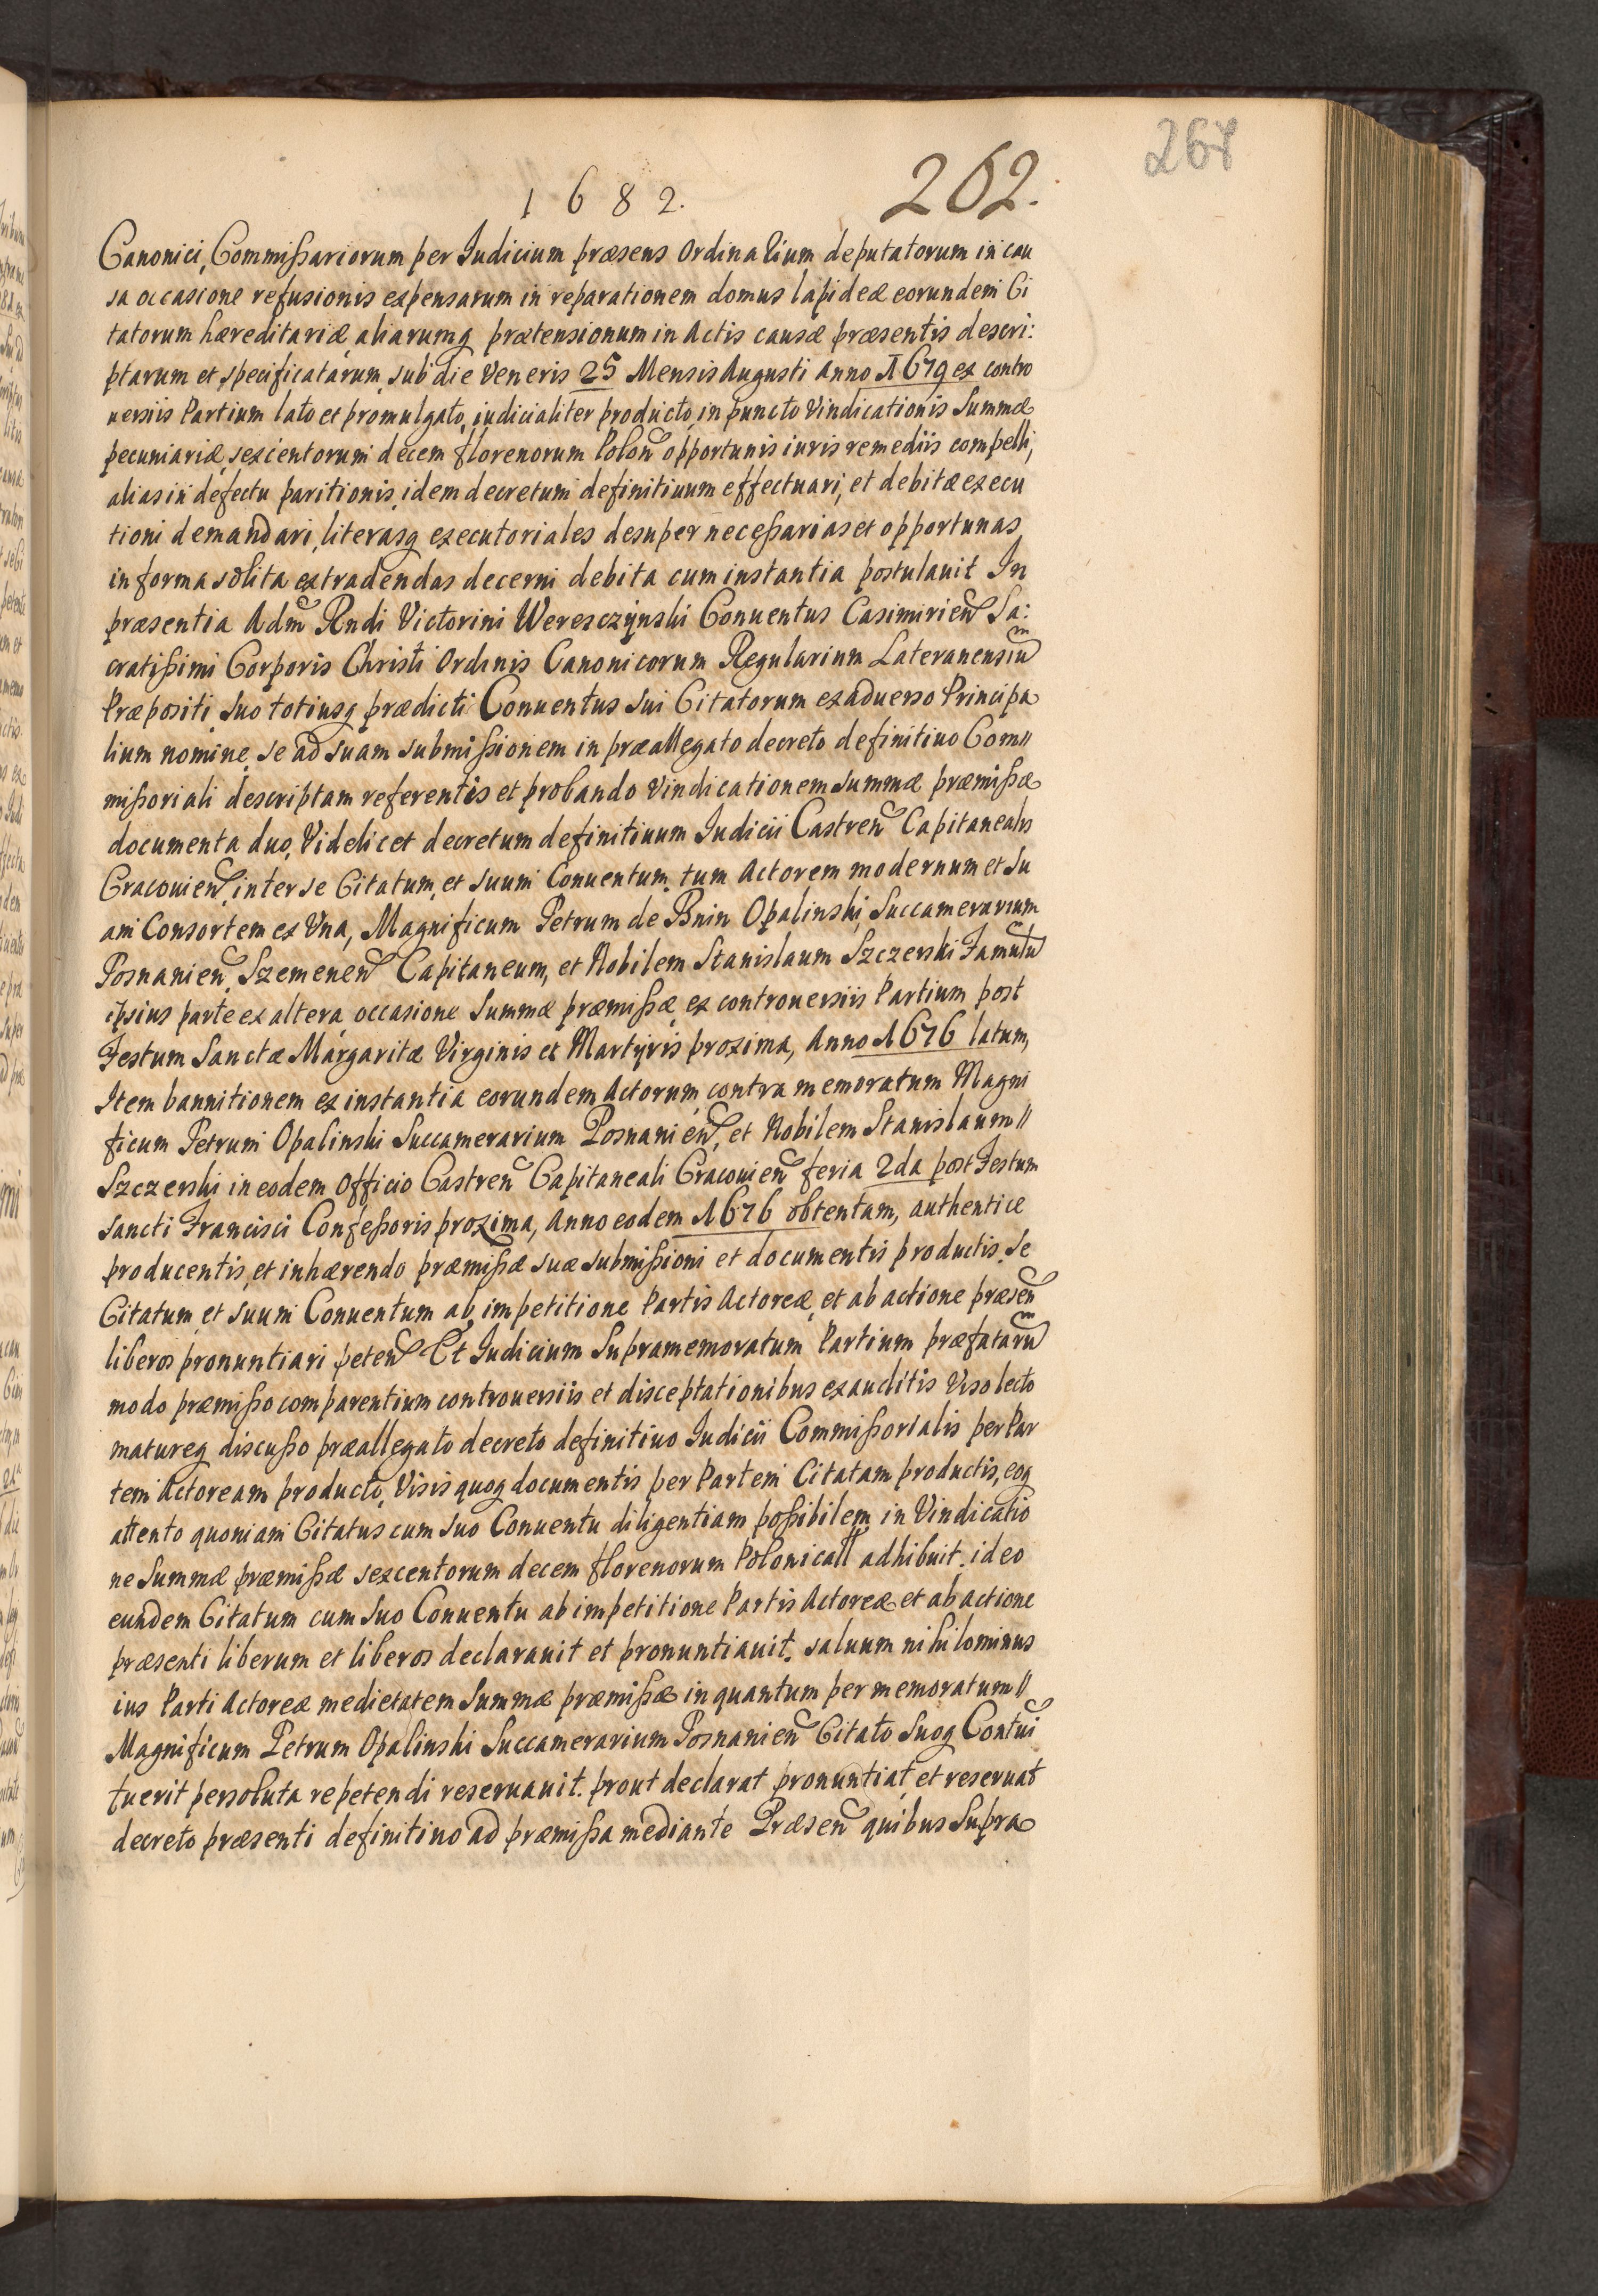 1682.
262.
267
Canonici, Commissariorum per Iudicium præsens Ordinarium deputatorum in cau
sa occasione refusionis expensarum in reparationem domus lapideæ eorundem Ci
tatorum hæreditariæ, aliarumq prætensionum in Actis causæ præsentis descri:
ptarum et specificatarum, sub die Veneris 25 Mensis Augusti Anno 1679 ex contro
uersiis Partium lato et promulgato, iudicialiter producto, in puncto Vindicationis Summæ
pecuniariæ, sexcentorum decem florenorum Polon opportunis iuris remediis compelli,
alias in defectu paritionis, idem decretum definitiuum effectuari, et debitæ execu
tioni demandari, literasq executoriales desuper necessarias et opportunas
in forma solita extradendas decerni debita cum instantia postulauit In
præsentia Adm Rndi Victorini Weresczynski Conuentus Casimirien Sa:
cratissimi Corporis Christi Ordinis Canonicorum Regularium Lateranensium
Præpositi suo totiusq prædicti Conuentus sui Citatorum ex aduerso Principa
lium nomine, se ad suam submissionem in præallegato decreto definitiuo Com//
missoriali descriptam referentis et probando Vindicationem summæ præmissæ
documenta duo, Videlicet decretum definitiuum Iudicii Castren Capitanealis
Cracouien, inter se Citatum, et suum Conuentum, tum Actorem modernum et su
am Consortem ex Vna, Magnificum Petrum de Bnin Opalinski, Succamerarium
Posnanien, Szemenen Capitaneum, et Nobilem Stanislaum Szczerski Famulu
ipsius parte ex altera, occasione Summæ præmissæ, ex controuersiis Partium post
Festum Sanctæ Margaritæ Virginis et Martyris proxima, Anno 1676 latum,
Item bannitionem ex instantia eorundem Actorum, contra memoratum Magni
ficum Petrum Opalinski Succamerarium Posnanien, et Nobilem Stanislaum//
Szczerski in eodem Officio Castren Capitaneali Cracouien feria 2da post Festum
Sancti Francisci Confessoris proxima, Anno eodem 1676 obtentam, authentice
producentis, et inhærendo præmissæ suæ submissioni et documentis productis, se
Citatum et suum Conuentum ab impetitione Partis Actoreæ, et ab actione præsen
liberos pronuntiari peten Et Iudicium Supramemoratum Partium præfatarum
modo præmisso comparentium controuersiis et disceptationibus exauditis Viso lecto
matureq discusso præallegato decreto definitiuo Iudicii Commissorialis per Par
tem Actoream producto, Visis quoq documentis per Partem Citatam productis, eoq
attento quoniam Citatus cum suo Conuentu diligentiam possibilem in Vindicatio
ne Summæ præmissæ sexcentorum decem florenorum Polonicall adhibuit, ideo
eundem Citatum cum suo Conuentu ab impetitione Partis Actoreæ et ab actione
præsenti liberum et liberos declarauit et pronuntiauit, saluum nihilominus
ius Parti Actoreæ medietatem Summæ præmissæ in quantum per memoratum//
Magnificum Petrum Opalinski Succamerarium Posnanien Citato suoq Contui
fuerit persoluta repetendi reseruauit. prout declarat pronuntiat, et reseruat
decreto præsenti definitiuo ad præmissa mediante Præsen quibus Supra